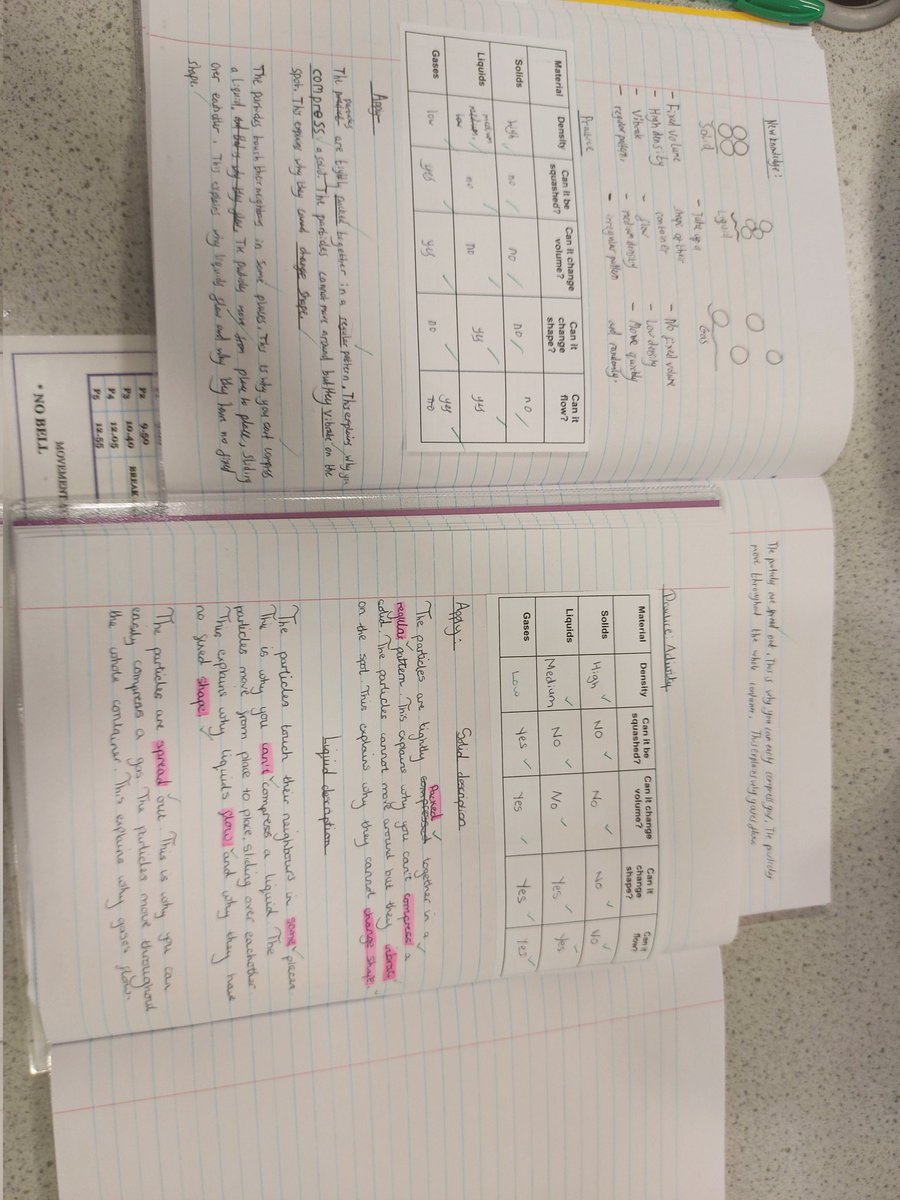 New knowledge:
Solid
- Fixed volume
- High density
- Vibrate
- regular pattern
Liquid
- Take up a
shape of their
container
- flow
- medium density
- irregular pattern
Gas
- No fixed volume
- Low density
- Move quickly
and randomly
Practice
Material Density Can it be squashed? Can it change volume? Can it change shape? Can it flow?
Solids high no no no no
Liquids medium no no yes yes
Gases low yes yes no yes
Apply
The particles are tightly packed together in a regular pattern. This explains why you
compress a solid. The particles cannot move around but they vibrate on the
spot. This explains why they cannot change shape.
The particles touch their neighbours in some places. This is why you cant compres
a liquid. The particles move from place to place, sliding
over eachother. This explains why liquids flow and why they have no fixed
shape.
MOVEMENT
P2 9.50
P3 10.40 BREAK
P4 12.05
P5 12.55
* NO BELL
The particles are spread out. This is why you can easily compress gas. The particles
move throughout the whole container. This explains why gases flow
Activity
Material Density Can it be squashed? Can it change volume? Can it change shape? Can it flow?
Solids High NO No No No
Liquids Medium NO No Yes Yes
Gases Low Yes Yes Yes Yes
Apply: Solid description
The particles are tightly compressed Packed together in a
regular pattern. This explains why you can't compress a
solid. The particles cannot move around but they vibrate
on the spot. This explains why they cannot change shape.
Liquid description
The particles touch their neighbours in some places
This is why you can't compress a liquid. The
particles move from place to place, sliding over eachother.
This explains why liquids flow and why they have
no fixed shape
The particles are spread out. This is why you can
easily compress a gas. The particles move throughout
the whole container. This explains why gases flow.